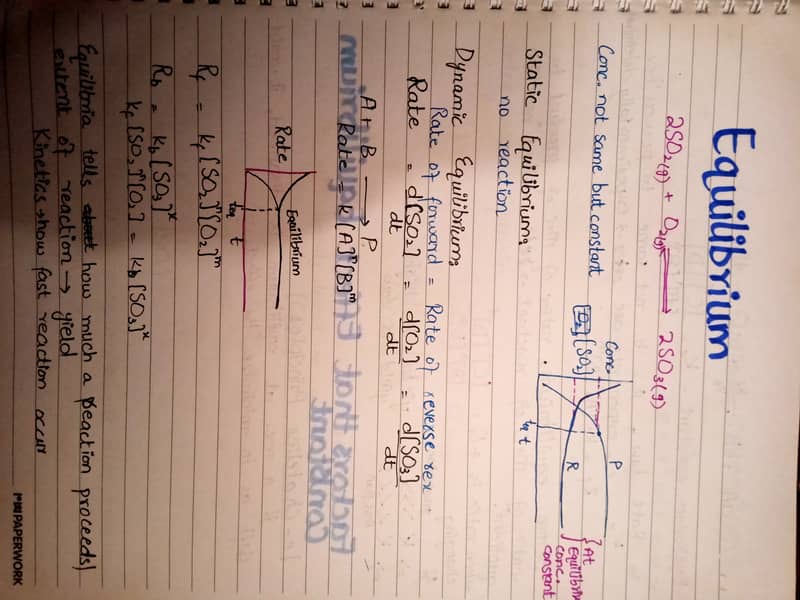 Equilibrium
2SO₂(g) + O₂(g) ⇌ 2SO₃(g)
Conc. not same but constant
Conc
[O₂] [SO₂]
P
R
teq t
{At
Equilibrium
conc.
constant
Static Equilibrium:
no reaction
Dynamic Equilibrium:
Rate of forward = Rate of reverse rex
Rate = d[SO₂]/dt = d[O₂]/dt = d[SO₃]/dt
A + B → P
Rate = k[A]ⁿ[B]ᵐ
Rf = kf [SO₂]ⁿ[O₂]ᵐ
Rate
Equilibrium
teq t
Rb = kb [SO₃]ˣ
kf [SO₂]ⁿ[O₂] = kb [SO₃]ˣ
Equilibria tells how much a reaction proceeds/
extent of reaction → yield
Kinetics → how fast reaction occur
PAPERWORK